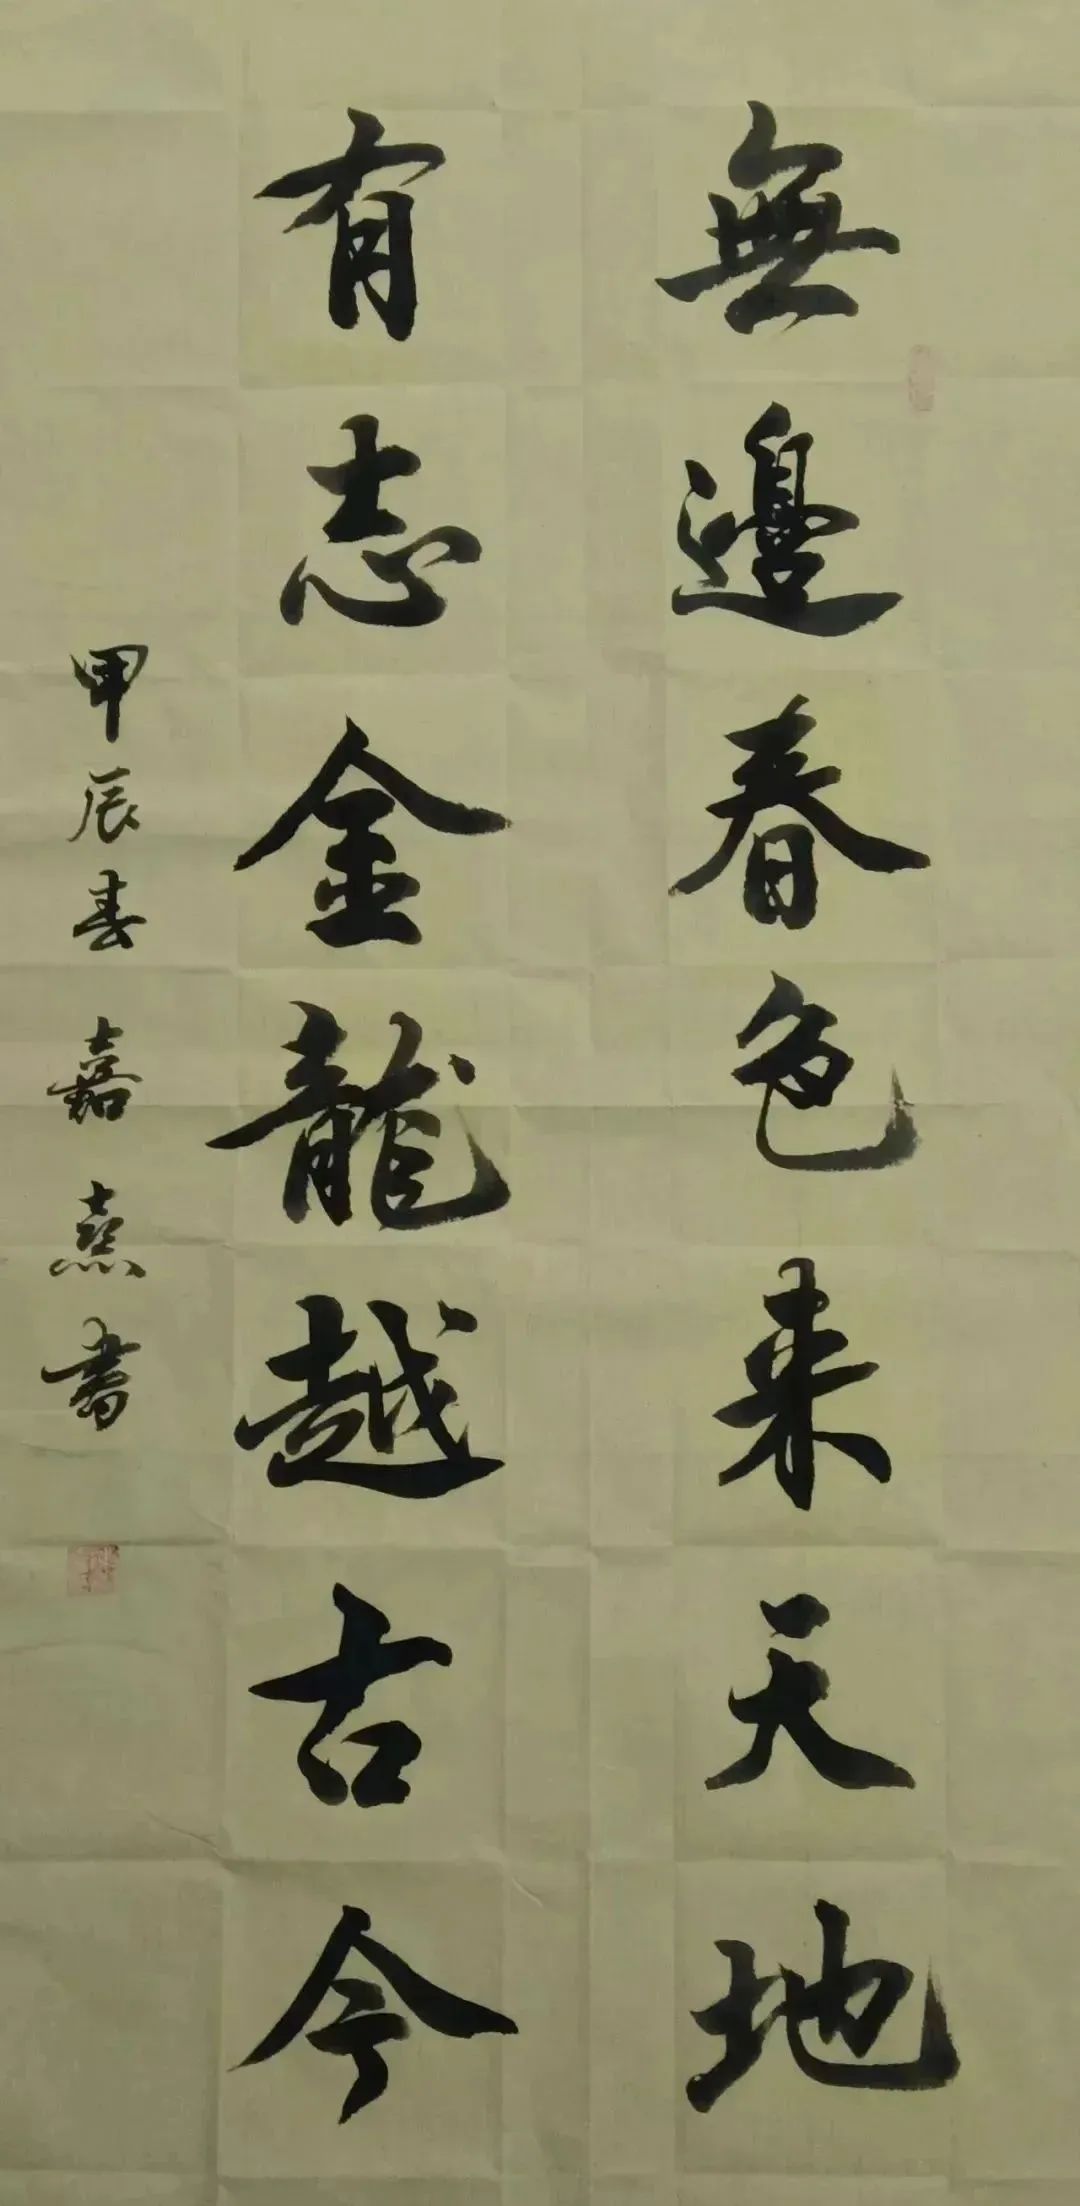 無邊春色来天地
有志金龍越古今
甲辰春嘉熹書